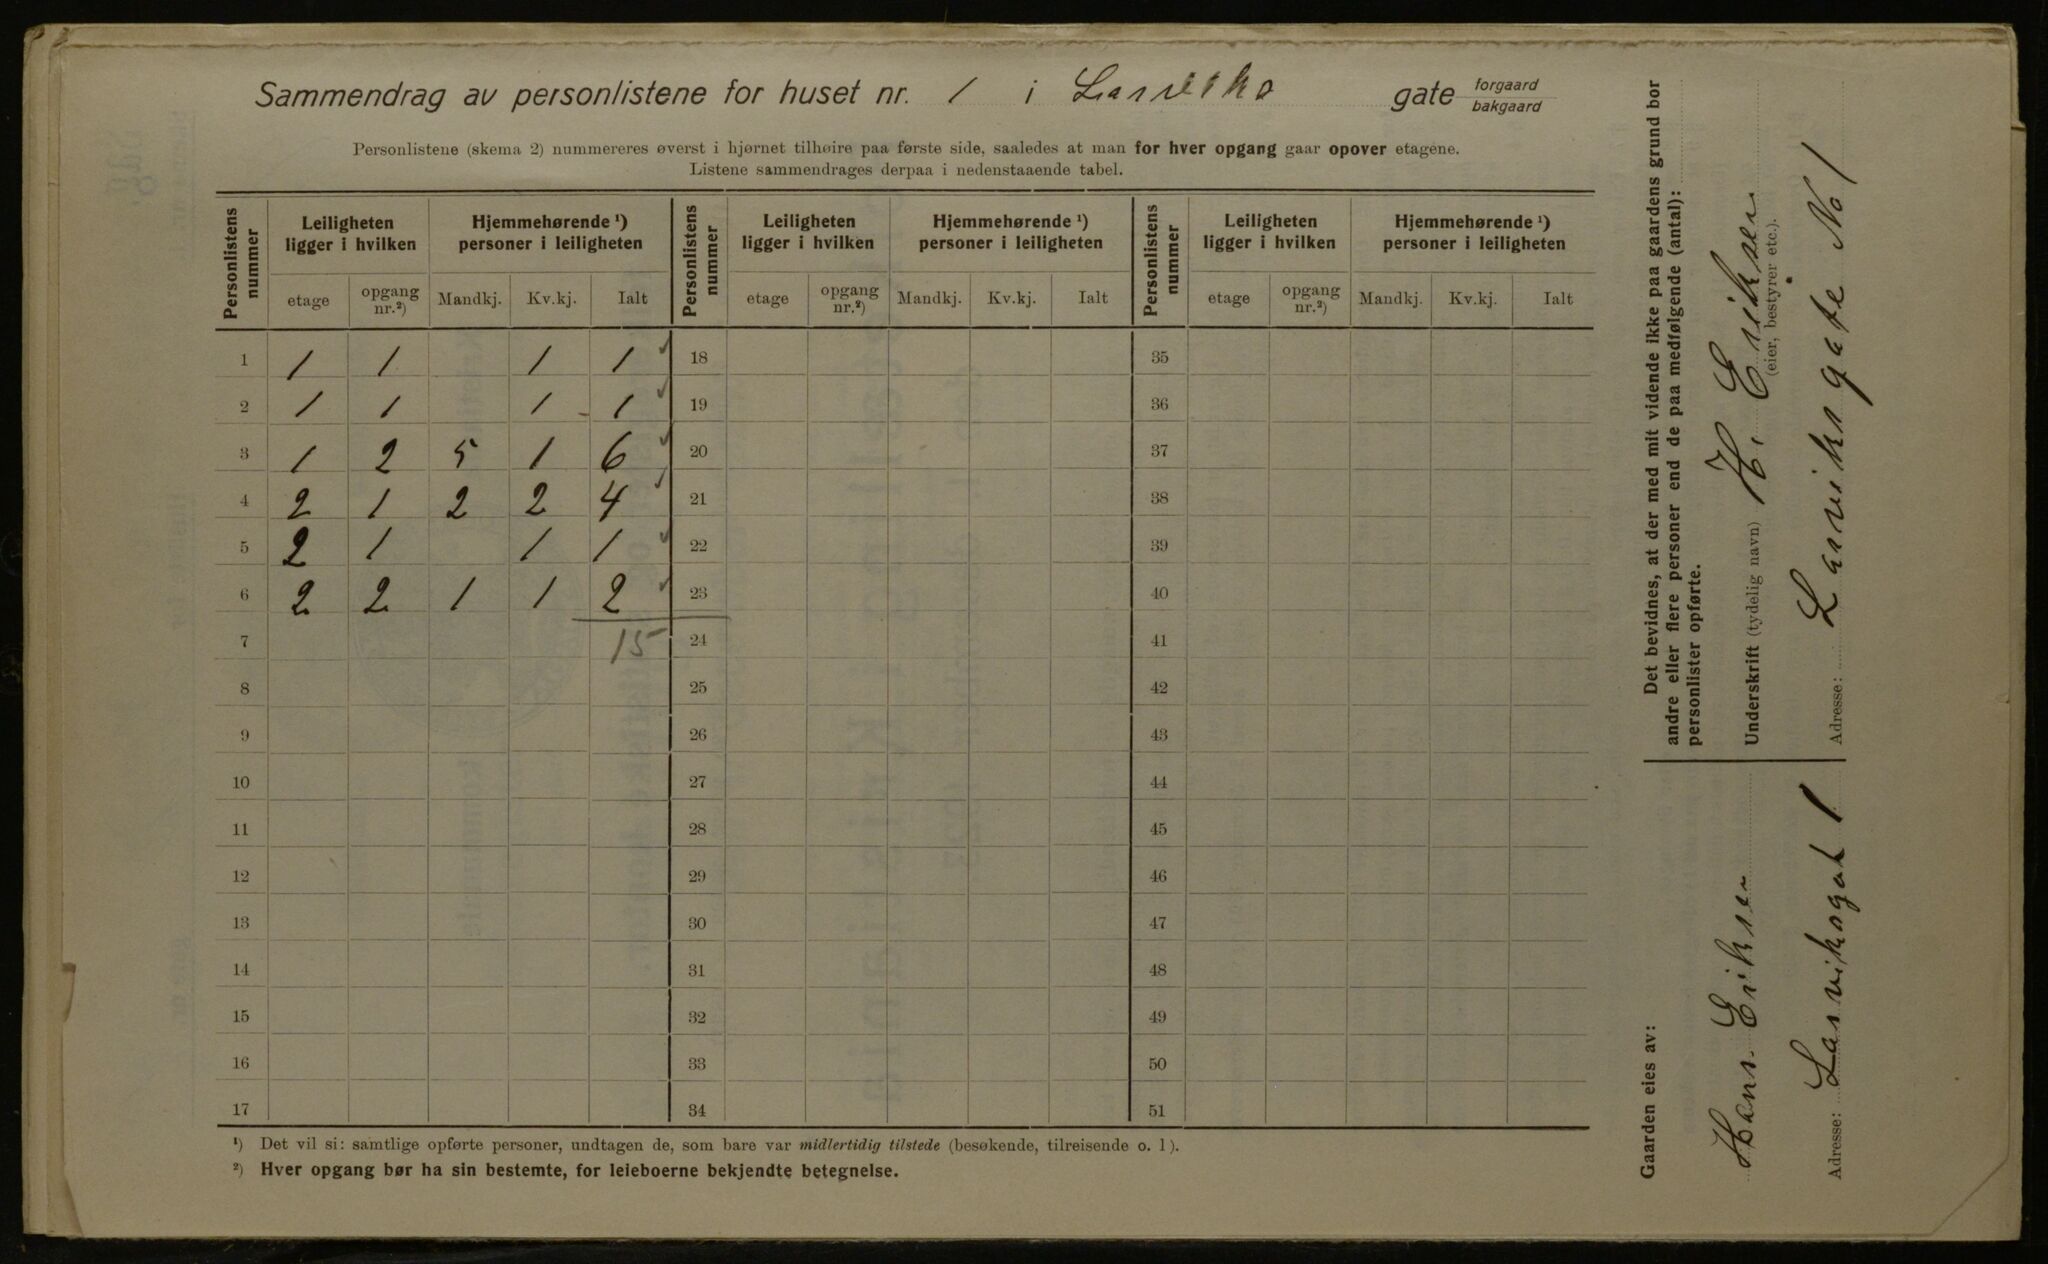 Sammendrag av personlistene for huset nr. 1 i Larviks gate forgaard bakgaard
Personlistene (skema 2) nummereres øverst i hjørnet tilhøire paa første side, saaledes at man for hver opgang gaar opover etagene.
Listene sammendrages derpaa i nedenstaaende tabel.
Personlistens nummer | Leiligheten ligger i hvilken | Hjemmehørende ¹) personer i leiligheten | Personlistens nummer | Leiligheten ligger i hvilken | Hjemmehørende ¹) personer i leiligheten | Personlistens nummer | Leiligheten ligger i hvilken | Hjemmehørende ¹) personer i leiligheten
etage | opgang nr.²) | Mandkj. | Kv.kj. | Ialt | etage | opgang nr.²) | Mandkj. | Kv.kj. | Ialt | etage | opgang nr.²) | Mandkj. | Kv.kj. | Ialt
1 | 1 | 1 | | 1 | 1 ✓ | 18 | 35
2 | 1 | 1 | | 1 | 1 ✓ | 19 | 36
3 | 1 | 2 | 5 | 1 | 6 ✓ | 20 | 37
4 | 2 | 1 | 2 | 2 | 4 ✓ | 21 | 38
5 | 2 | 1 | | 1 | 1 ✓ | 22 | 39
6 | 2 | 2 | 1 | 1 | 2 ✓ | 23 | 40
7 | | | | | 15 | 24 | 41
8 | 25 | 42
9 | 26 | 43
10 | 27 | 44
11 | 28 | 45
12 | 29 | 46
13 | 30 | 47
14 | 31 | 48
15 | 32 | 49
16 | 33 | 50
17 | 34 | 51
¹) Det vil si: samtlige opførte personer, undtagen de, som bare var midlertidig tilstede (besøkende, tilreisende o. l.).
²) Hver opgang bør ha sin bestemte, for leieboerne bekjendte betegnelse.
Gaarden eies av:
Hans Eriksen
Adresse: Larviksgat 1
Det bevidnes, at der med mit vidende ikke paa gaardens grund bor
andre eller flere personer end de paa medfølgende (antal):
personlister opførte.
Underskrift (tydelig navn) H. Eriksen
(eier, bestyrer etc.).
Adresse: Larviksgate No 1